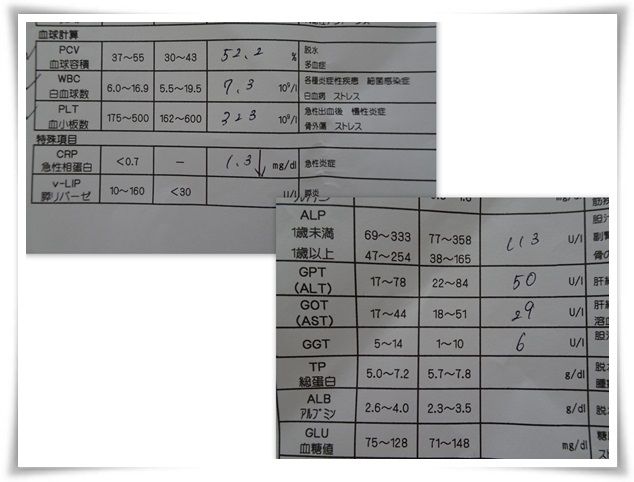 血球計算
PCV 血球容積 37~55 30~43 52.2 % 脱水 多血症
WBC 白血球数 6.0~16.9 5.5~19.5 9.3 10⁹/l 各種炎症性疾患 細菌感染症 白血病 ストレス
PLT 血小板数 175~500 162~600 323 10⁹/l 急性出血後 慢性炎症 骨外傷 ストレス
特殊項目
CRP 急性相蛋白 <0.7 − 1.3↓ mg/dl 急性炎症
v-LIP 膵リパーゼ 10~160 <30 U/l 膵炎
ALP
1歳未満 69~333 77~358 113 U/l
1歳以上 47~254 38~165
GPT (ALT) 17~78 22~84 50 U/l
GOT (AST) 17~44 18~51 29 U/l
GGT 5~14 1~10 6 U/l
TP 総蛋白 5.0~7.2 5.7~7.8 g/dl
ALB アルブミン 2.6~4.0 2.3~3.5 g/dl
GLU 血糖値 75~128 71~148 mg/dl